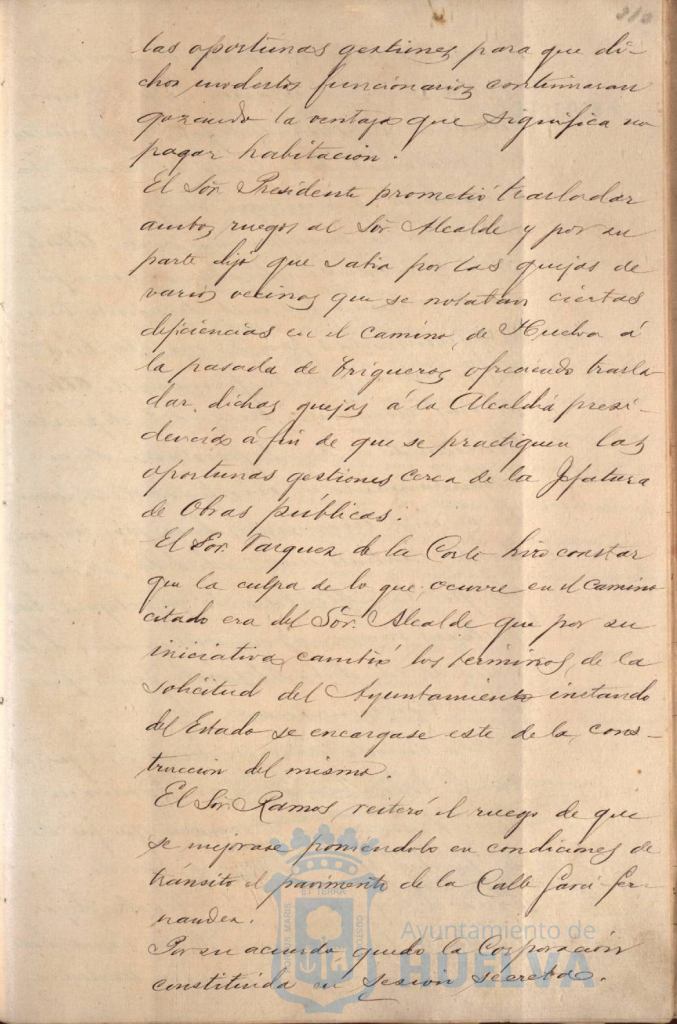 las oportunas gestiones para que di-
chos modestos funcionarios continuaran
gozando la ventaja que significa no
pagar habitacion.
El Sór. Presidente prometió trasladar
ambos ruegos al Sór. Alcalde y por su
parte dijo que sabia por las quejas de
varios vecinos que se notaban ciertas
deficiencias en el camino de Huelva á
la pasada de Trigueros ofreciendo trasla-
dar dichas quejas á la Alcaldia presi-
dencia á fin de que se practiquen las
oportunas gestiones cerca de la Jefatura
de Obras públicas.
El Sór. Vazquez de la Corte hizo constar
que la culpa de lo que ocurre en el camino
citado era del Sór. Alcalde que por su
iniciativa cambió los terminos de la
solicitud del Ayuntamiento instando
del Estado se encargase este de la cons-
truccion del mismo.
El Sór. Ramos reiteró el ruego de que
se mejorase poniendolo en condiciones de
tránsito el pavimento de la Calle Garci-Fer-
nandez.
Por su acuerdo quedó la Corporación
constituida en sesion secreta.
Ayuntamiento de
HUELVA